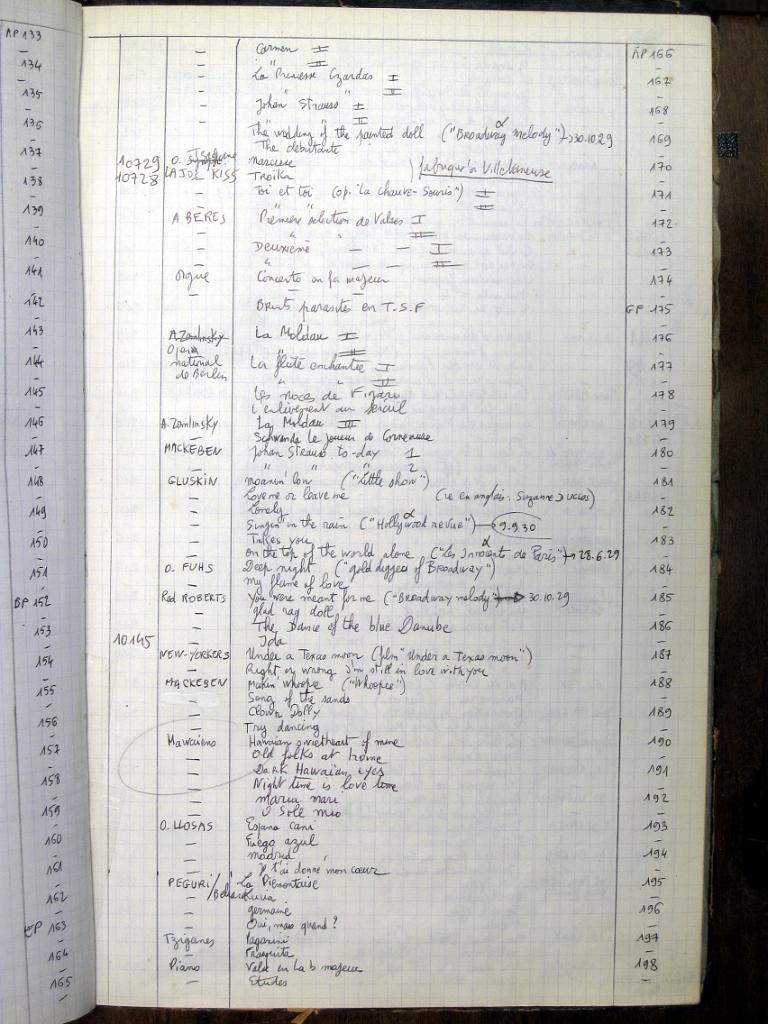 AP 133
134
135
136
137
138
139
140
141
142
143
144
145
146
147
148
149
150
151
BP 152
153
154
155
156
157
158
159
160
161
162
EP 163
164
165
— Carmen I AP 166
— " II —
— La Princesse Czardas I 167
— " II —
— Johan Strauss I 168
— " II —
— The wedding of the painted doll ("Broadway melody") → 30.10.29 169
— The debutante —
10729 O. Tzigane narcisse 170
10728 LAJOS KISS Troika fabriqué à Villetaneuse —
— Toi et toi (op. "la chauve-souris") I 171
— II —
A BERES Première sélection de Valses I 172
— " " II —
— Deuxième — — I 173
— " — — II —
Orgue Concerto en fa majeur 174
— — —
Bruits parasites en T.S.F EP 175
—
A Zemlinsky La Moldau I 176
Opéra " II —
national La flute enchantée I 177
de Berlin " " II —
Les noces de Figaro 178
L'enlèvement au sérail —
A. Zemlinsky La Moldau III 179
— Schwanda le joueur de Cornemuse —
MACKEBEN Johan Strauss to-day 1 180
— " " " 2 —
GLUSKIN moanin' low ("Little show") 181
— Love me or leave me —
— Lonely 182
— Singin' in the rain ("Hollywood revue") → 9.9.30 —
— Takes you 183
— on the top of the world alone ("Les Innocents de Paris") → 28.6.29 —
O. FUHS Deep night ("gold diggers of Broadway") 184
— my flame of love —
Red ROBERTS You were meant for me ("Broadway melody") → 30.10.29 185
— glad rag doll —
— The Dance of the blue Danube 186
10145 — Ida —
NEW-YORKERS Under a Texas moon (film "Under a Texas moon") 187
— Right or wrong I'm still in love with you —
MACKEBEN Makin' whoopee ("Whoopee") 188
— Song of the sands —
— Clown Dolly 189
— Try dancing —
Hawaiens Hawaian sweetheart of mine 190
— Old folks at home —
— Dark Hawaian eyes 191
— Night time is love time —
— Maria mari 192
— O Sole mio —
O. LLOSAS Espana cani 193
— Fuego azul —
— Madrid 194
— Je t'ai donné mon cœur —
PEGURI/ La Piemontaise 195
—
— germaine 196
— Oui, mais quand ? —
Tziganes Paganini 197
— Frasquita —
Piano Valse en La b majeur 198
— Etudes —